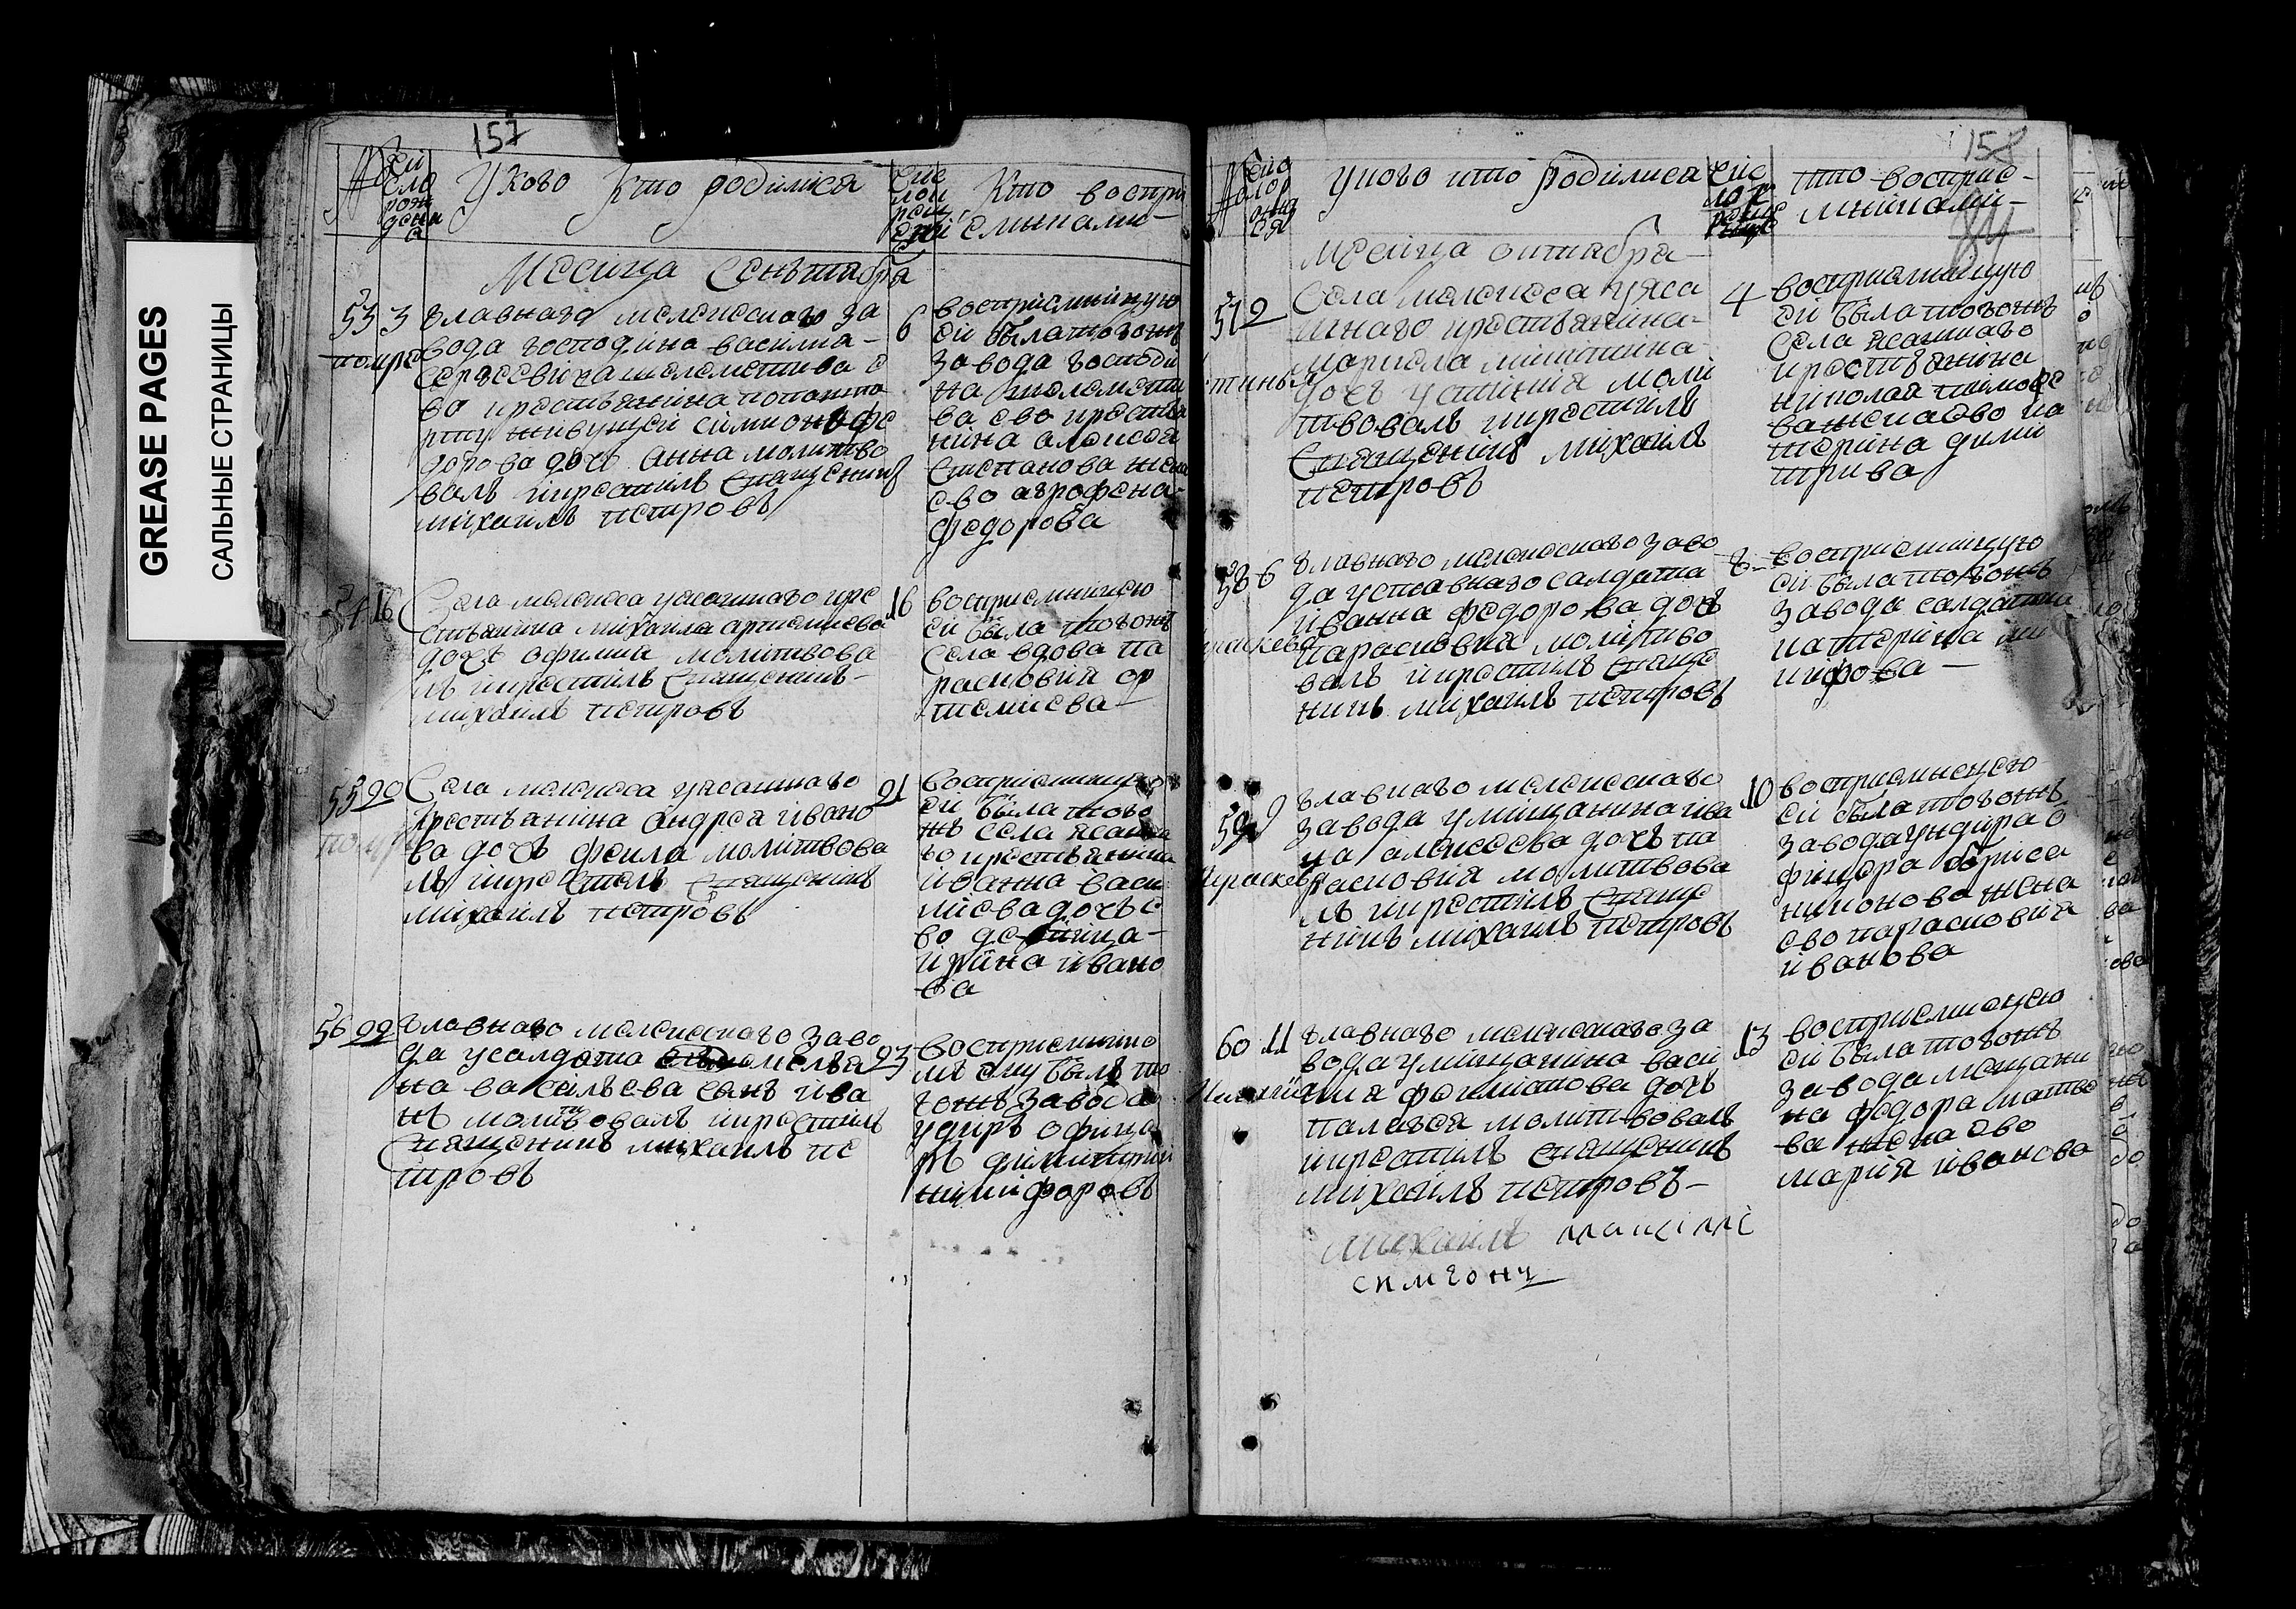 GREASE PAGES
САЛЬНЫЕ СТРАНИЦЫ
157
У кого кто родилися
Кто воспри
емниками
Месяца Сентебря
53 3 главнаго мелекескаго за 6
помре вода господина василиа
сергеевича
во крестьянина по
живущей симиона фе
дорова дочь анна молитво
валъ и крестилъ священникъ
михаилъ петровъ
восприемницую
ей была тогожъ
завода господи
на
ва ево крестья
нина алексея
степанова жена
ево агрофена
федорова
54 16 Села мелекеса у ясашнаго кре 16
стьянина михаила артемиева
дочь офимия молитвова
лъ и крестилъ священникъ
михаилъ петровъ
восприемницею
ей была тогожъ
села вдова па
расковия ар
темиева
55 20 Села мелекеса у ясашнаго 21
крестьянина андрея ивано
ва дочь фекла молитвова
лъ и крестилъ священникъ
михаилъ петровъ
восприемницею
ей была того
жъ села ясашна
го крестьянина
иванна васи
лиева дочь е
во девица
ирина ивано
ва
56 22 главнаго мелекескаго заво 23
да у салдата емелья
на васильева сынъ ива
нъ молитвовалъ и крестилъ
священникъ михаилъ пе
тровъ
восприемнико
мъ ему былъ то
гожъ завода
ундиръ офице
ръ димитрий
никифоровъ
158
У кого кто родилися
кто восприе
мниками
Месяца октебря
57 2 Села мелекеса у яса 4
шнаго крестьянина
дочь устиния моли
твовалъ и крестилъ
священникъ михаилъ
петровъ
восприемницую
ей была тогожъ
села ясашнаго
крестьянина
николая тимофе
ва жена ево ка
терина дими
трива
58 6 главнаго мелекескаго заво 8
да у ставнаго салдата
иванна федорова дочь
парасковия молитво
валъ и крестилъ свяще
никъ михаилъ петровъ
восприемницую
ей была тогожъ
завода салдатка
катерина ни
кифова
59 9 главнаго мелекескаго 10
завода у мещанина ива
на алексеева дочь па
расковия молитвова
лъ и крестилъ свяще
никъ михаилъ петровъ
восприемницею
ей была тогожъ
завода ундира о
фицера бориса
жена
ево парасковия
иванова
60 11 главнаго мелекескаго за 13
вода у мещанина васи
лия дочь
палагея молитвовалъ
и крестилъ священникъ
михаилъ петровъ
восприемницею
ей была тогожъ
завода мещани
на федора матве
ва жена ево
мария иванова
михаилъ